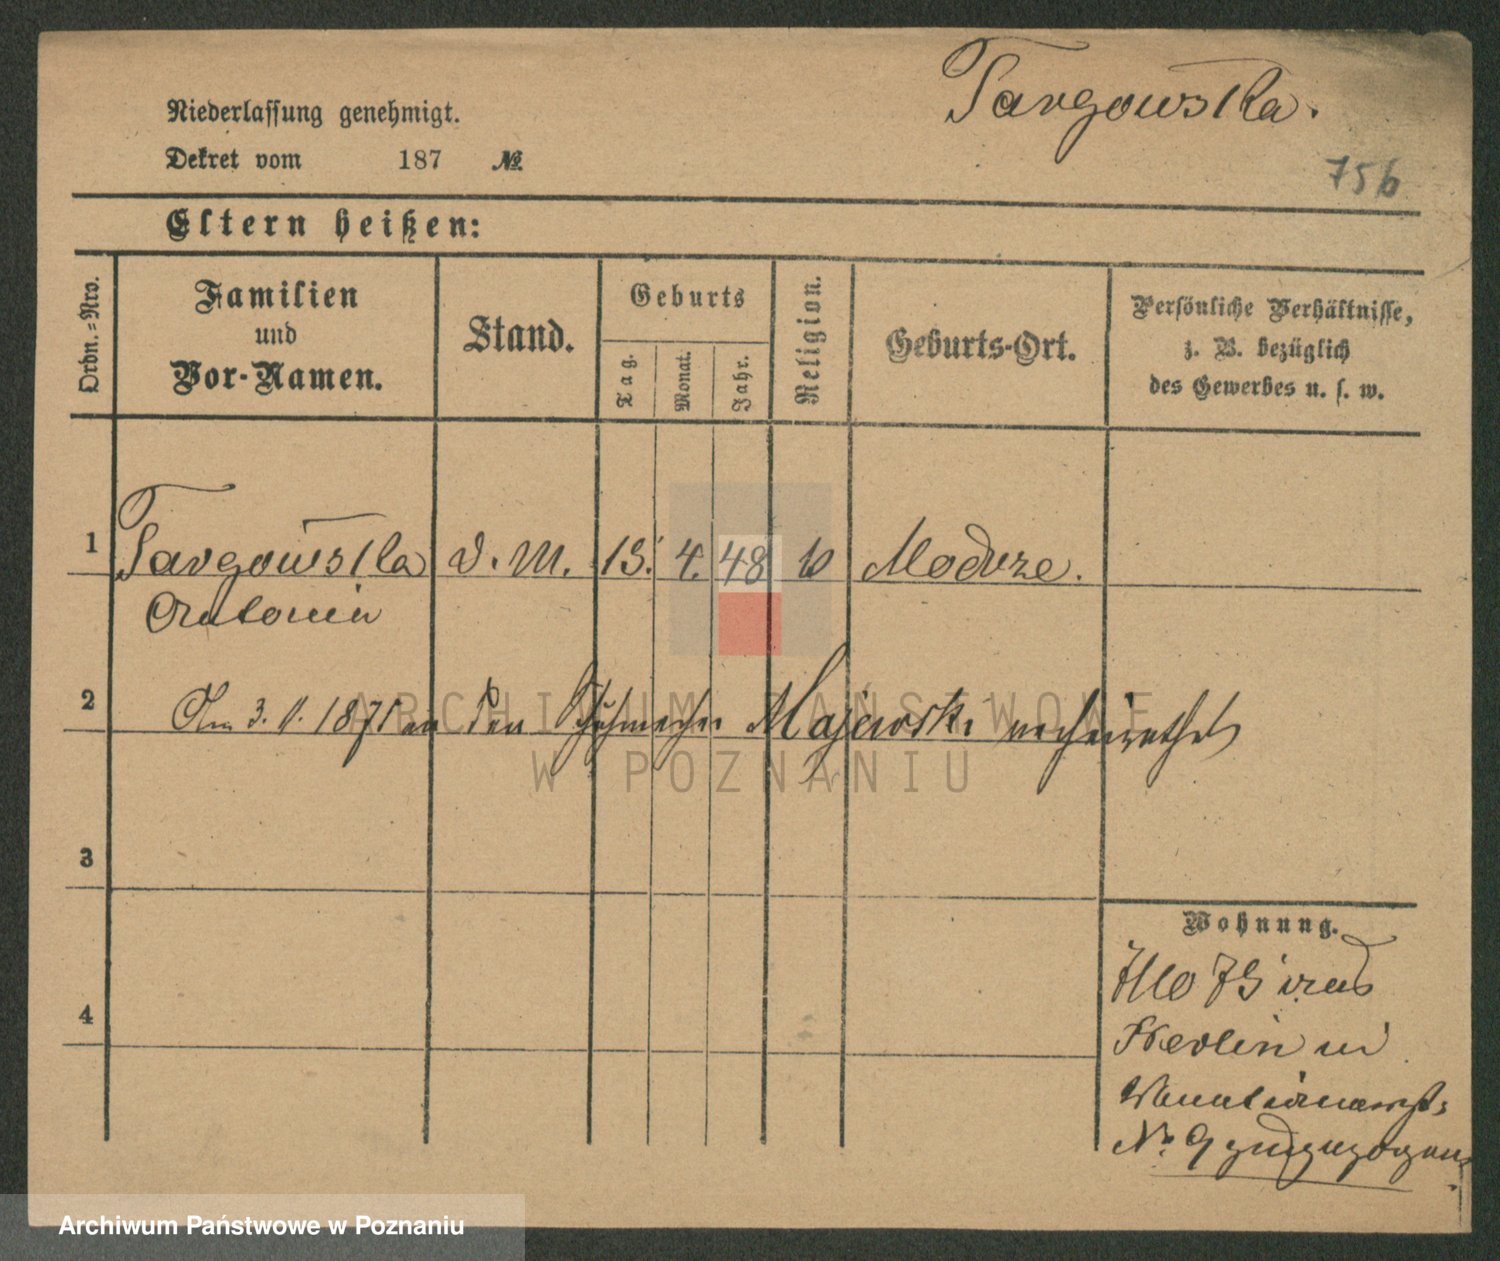 Targowska.
Niederlassung genehmigt.
Dekret vom 187 №
756
Eltern heißen:
Ordn.=Nro.
Familien
und
Vor-Namen.
Stand.
Geburts
Tag.
Monat.
Jahr.
Religion.
Geburts-Ort.
Persönliche Verhältnisse,
z. B. bezüglich
des Gewerbes u. s. w.
1 Targowska d. M. 13. 4. 48 k Modrze.
Antonie
2 Am 3. 1871 an den Schuhmacher Majewski verheirathet
ARCHIWUM PAŃSTWOWE
W POZNANIU
3
Wohnung.
4
Berlin
No 9 zugezogen
Archiwum Państwowe w Poznaniu